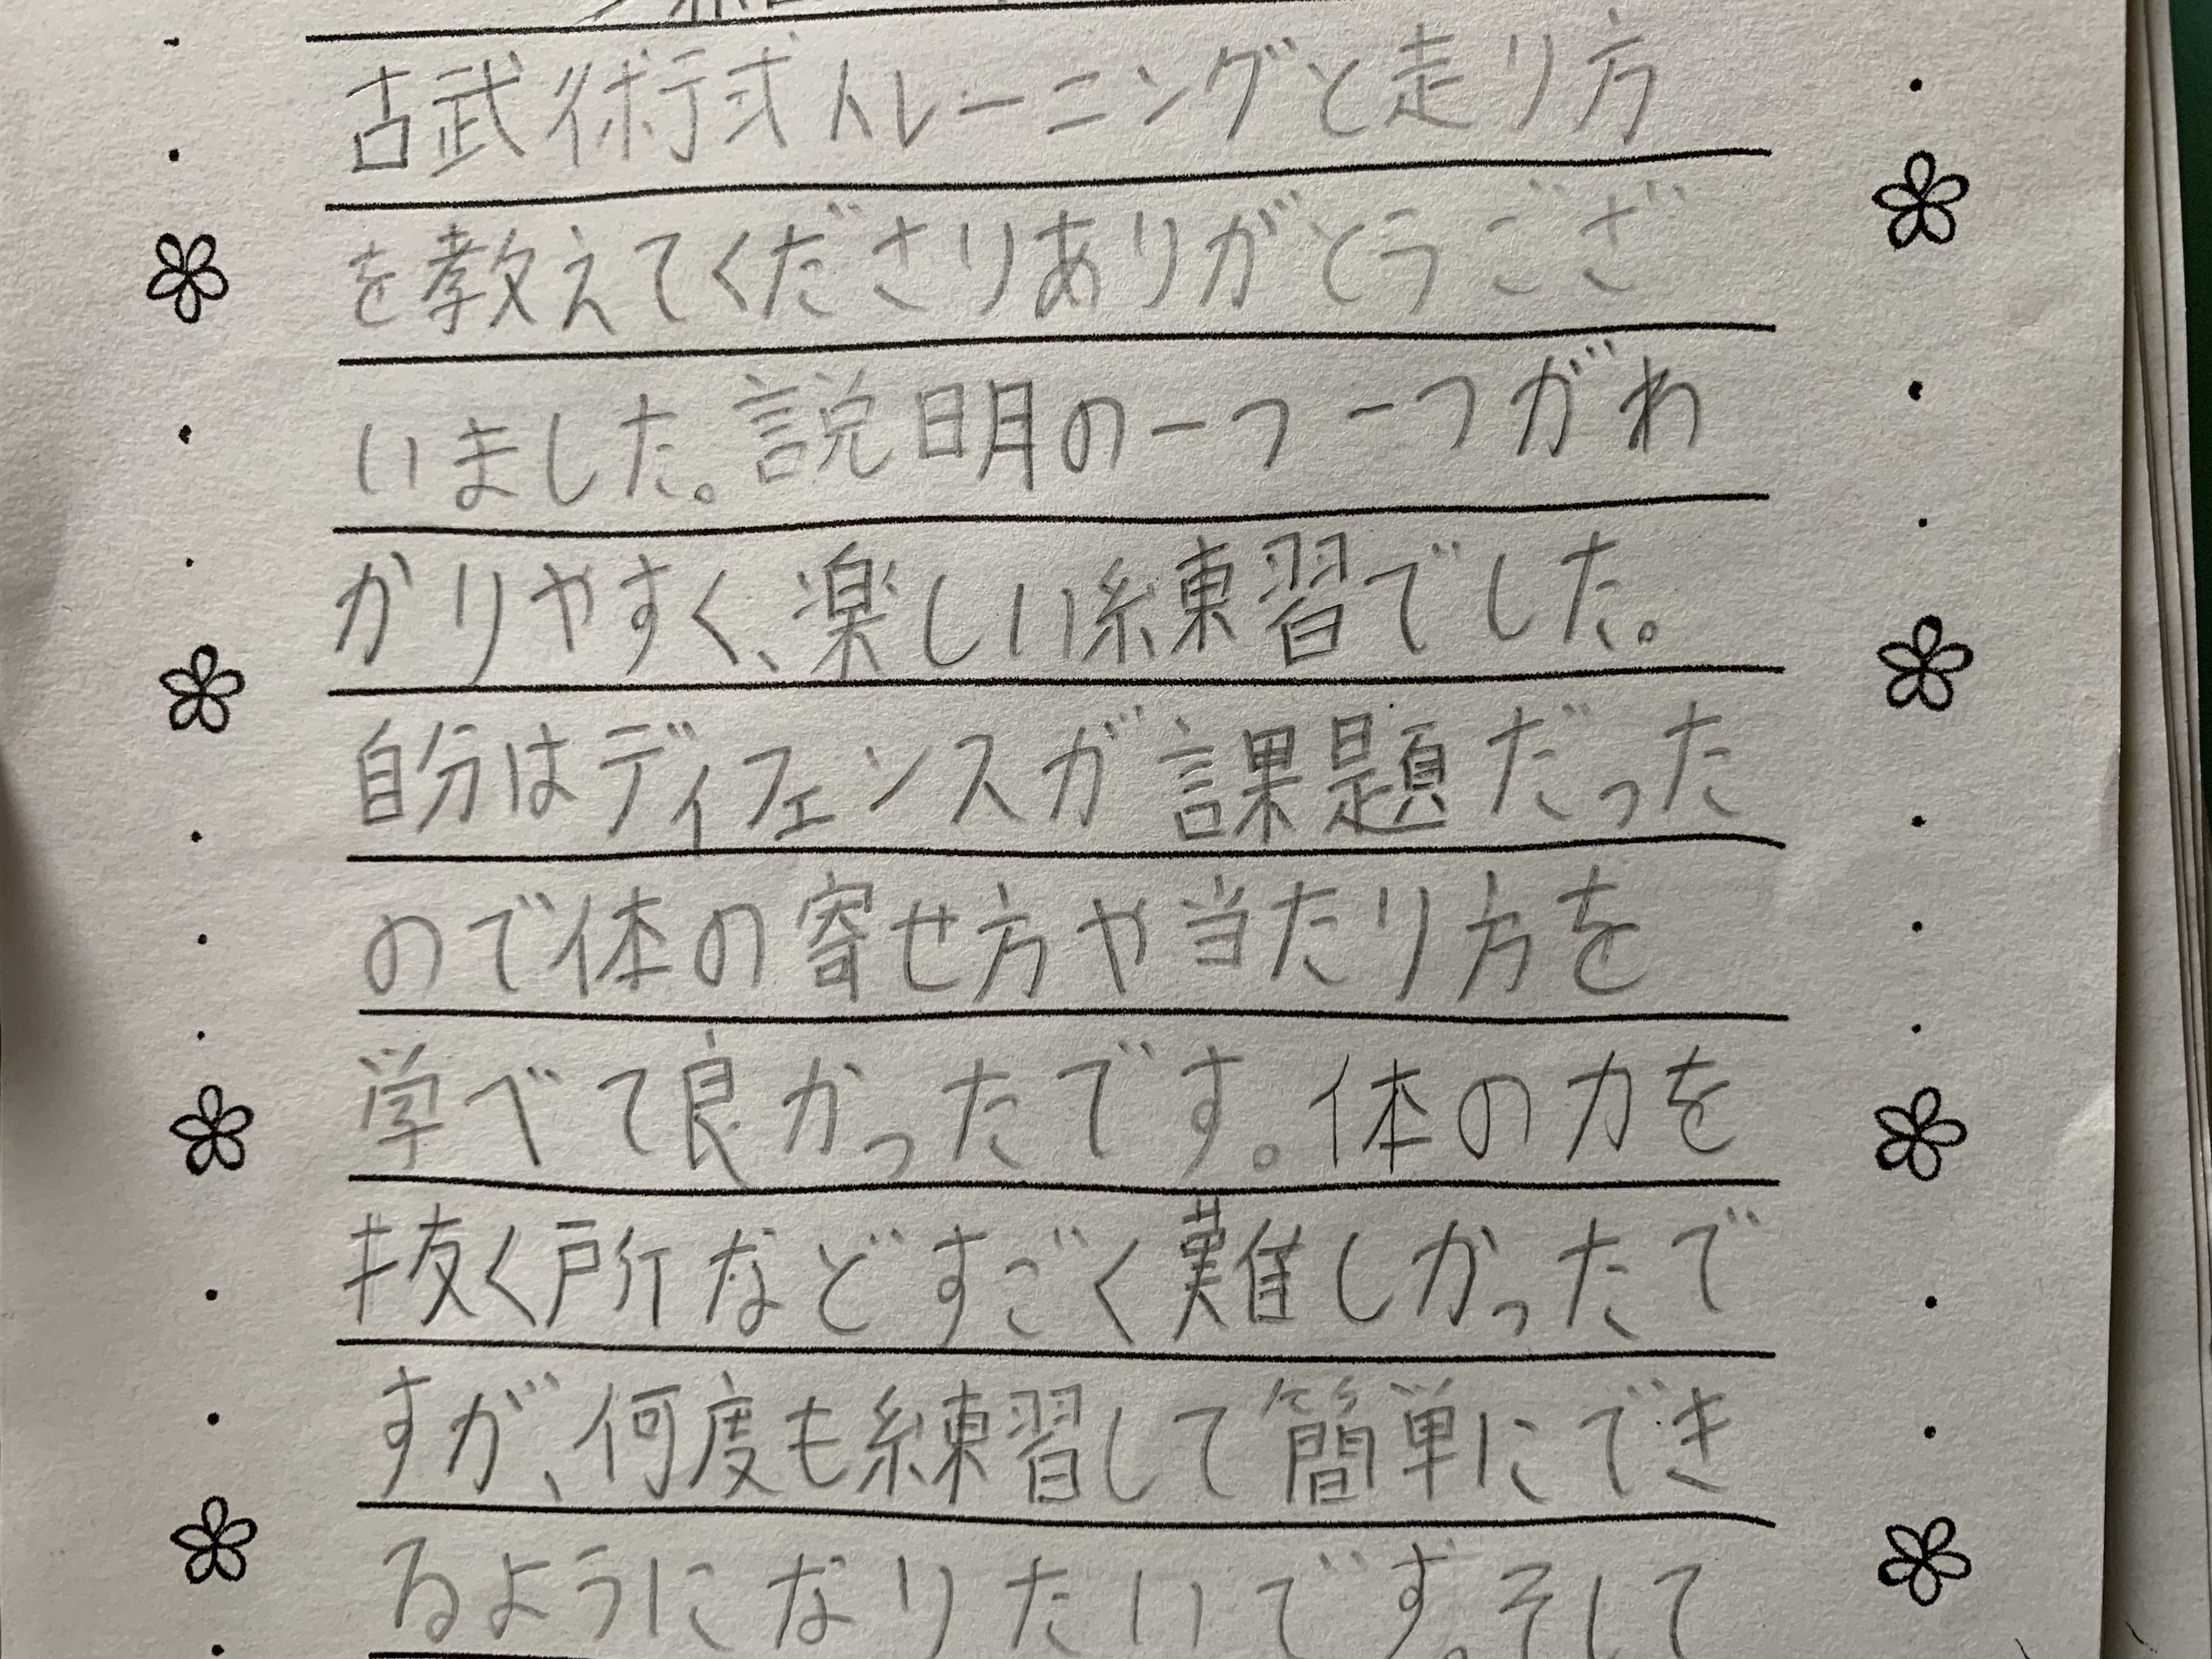 古武術式トレーニングと走り方
を教えてくださりありがとうござ
いました。説明の一つ一つがわ
かりやすく、楽しい練習でした。
自分はディフェンスが課題だった
ので体の寄せ方や当たり方を
学べて良かったです。体の力を
抜く所などすごく難しかったで
すが、何度も練習して簡単にでき
るようになりたいです。そして